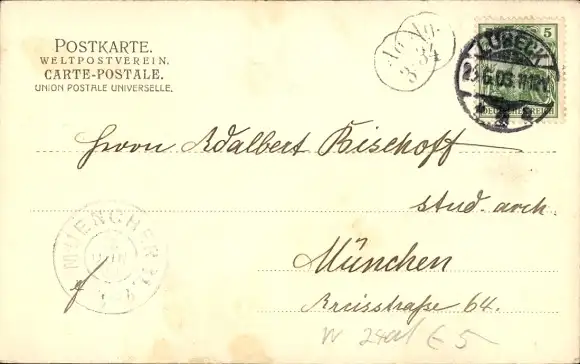 POSTKARTE.
WELTPOSTVEREIN.
CARTE-POSTALE.
UNION POSTALE UNIVERSELLE.
Ao No.
3-34
5
LÜBECK
DEUTSCHES REICH
Herrn Adalbert Bischoff
stud. arch.
München
Kreisstraße 64.
MUENCHEN